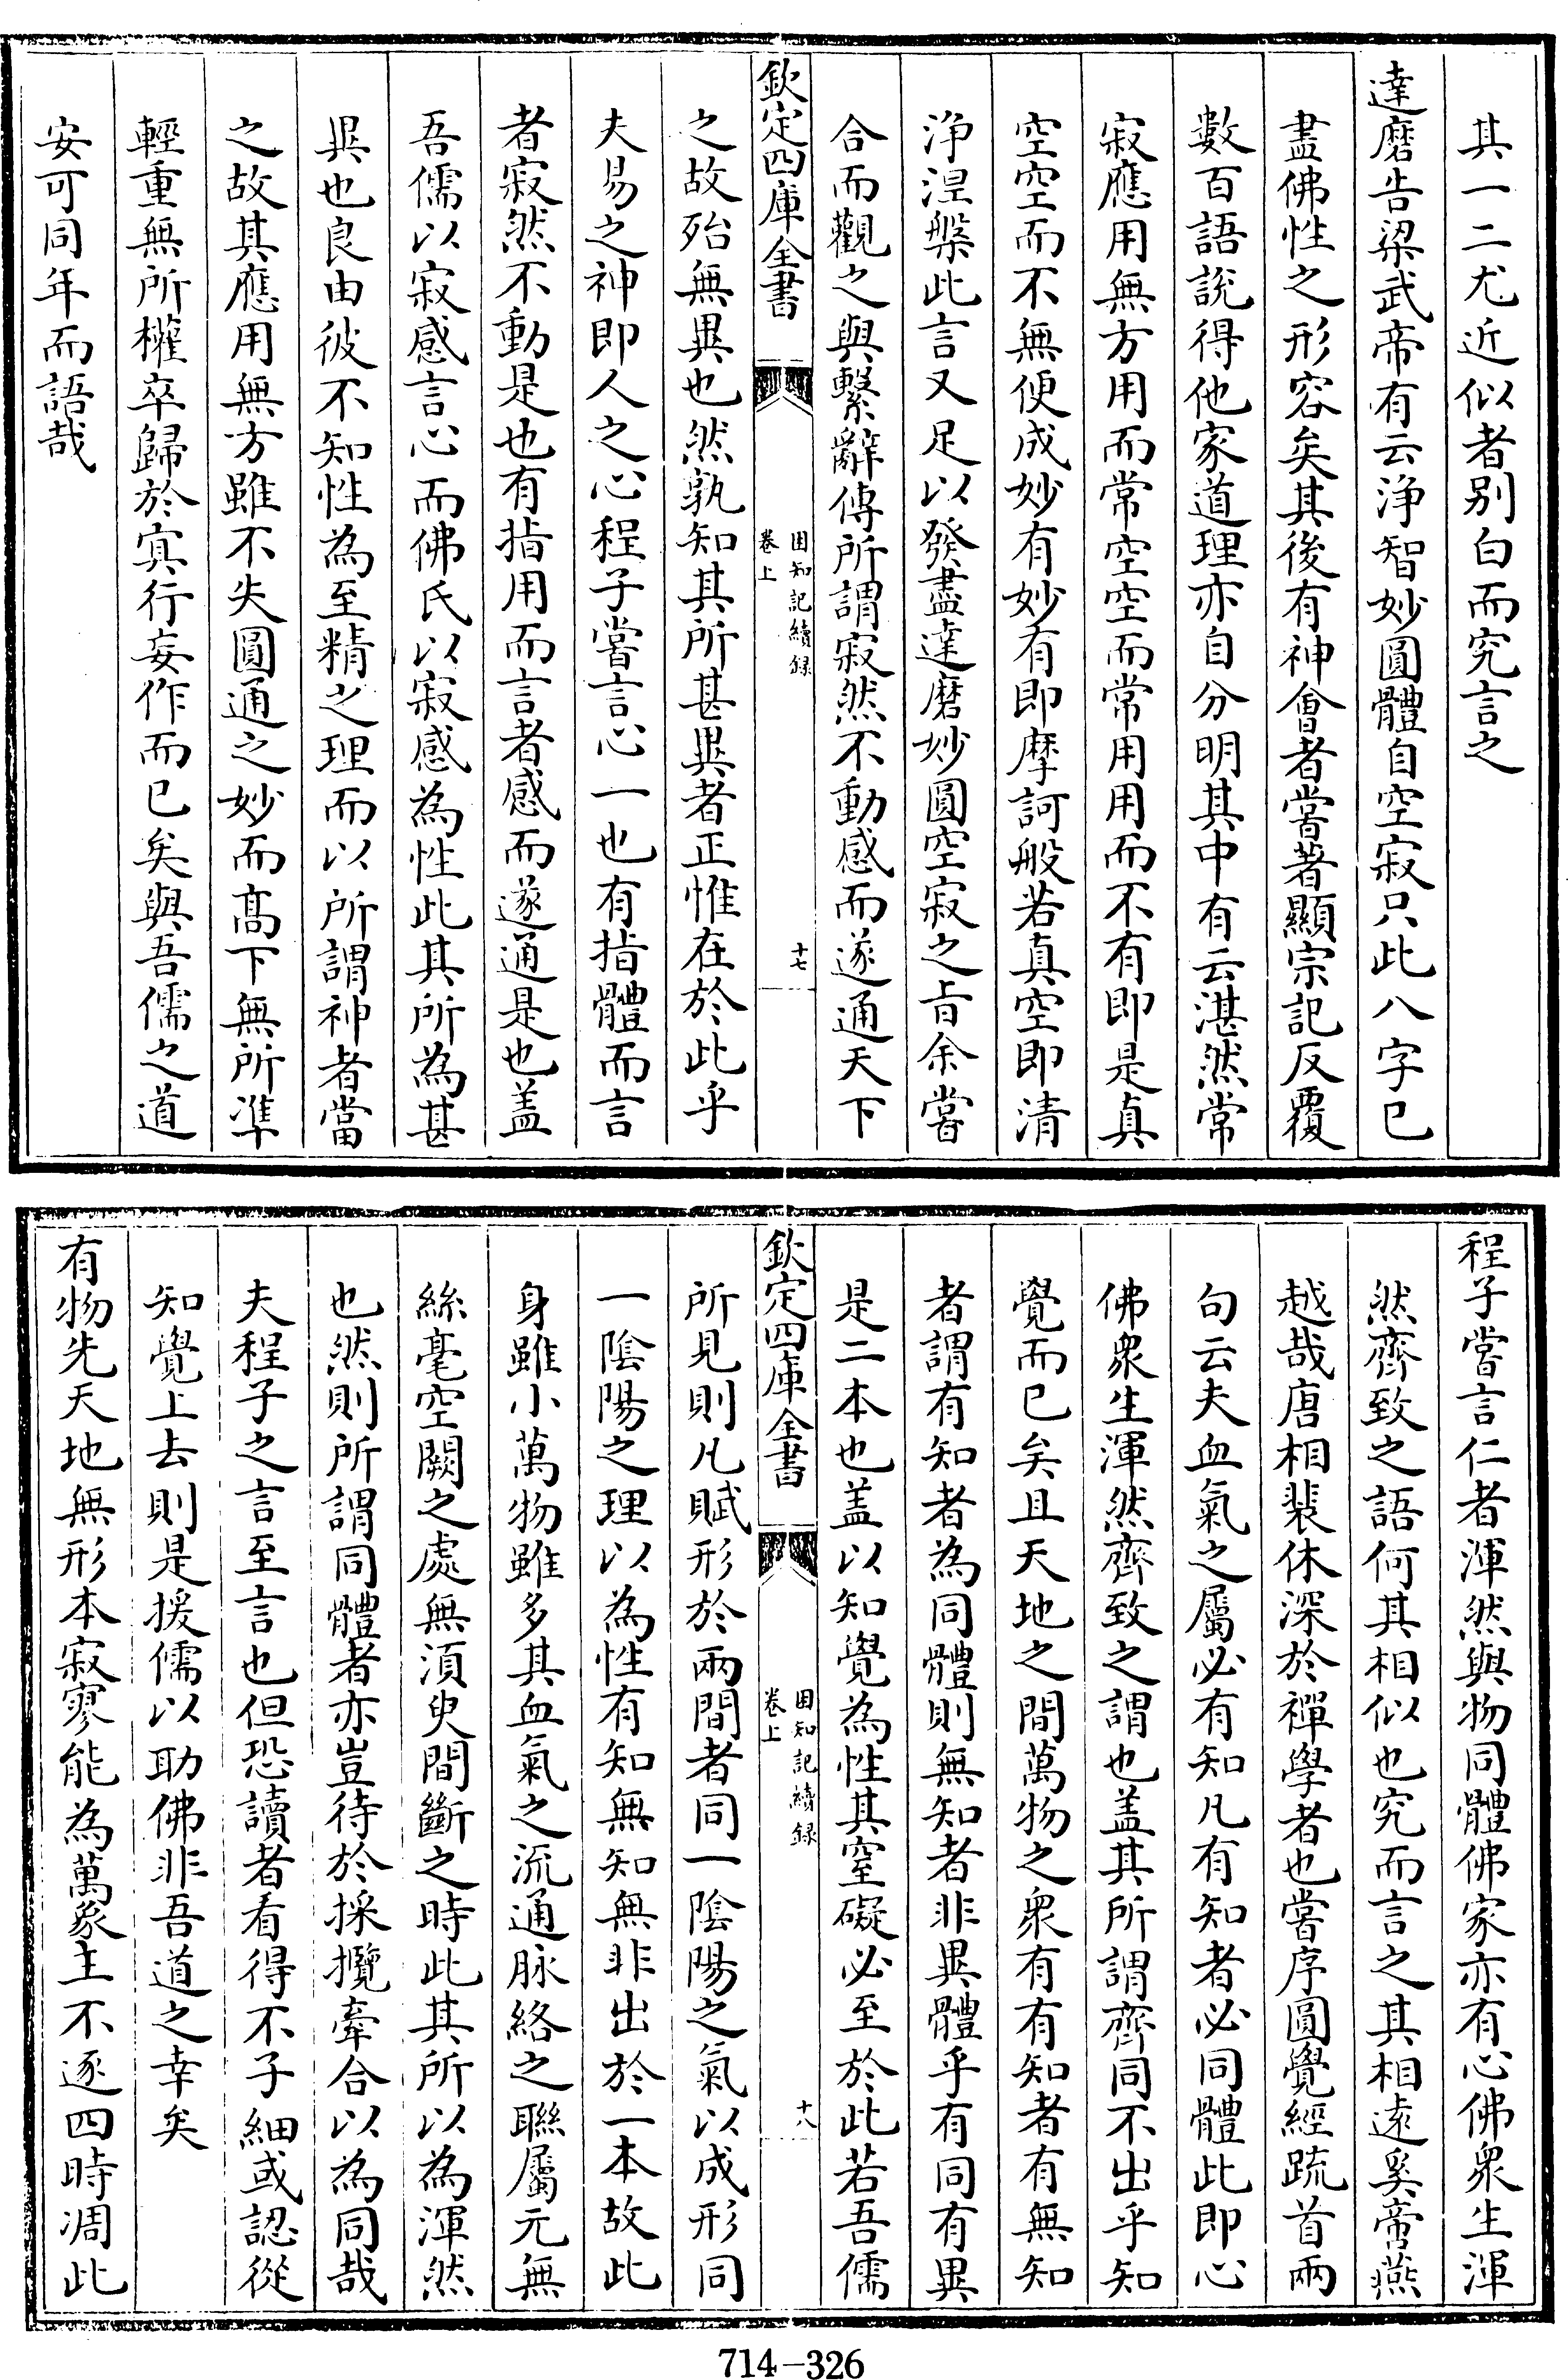 其一二尤近似者别白而究言之
達磨告梁武帝有云浄智妙圓體自空寂只此八字已
盡佛性之形容矣其後有神會者嘗著顯宗記反覆
數百語說得他家道理亦自分明其中有云湛然常
寂應用無方用而常空空而常用用而不有即是真
空空而不無便成妙有妙有即摩訶般若真空即清
浄涅槃此言又足以發盡達磨妙圓空寂之㫖余嘗
合而觀之與繫辭傳所謂寂然不動感而遂通天下
欽定四庫全書
困知記續録
卷上
十七
之故殆無異也然孰知其所甚異者正惟在於此乎
夫易之神即人之心程子嘗言心一也有指體而言
者寂然不動是也有指用而言者感而遂通是也盖
吾儒以寂感言心而佛氏以寂感為性此其所為甚
異也良由彼不知性為至精之理而以所謂神者當
之故其應用無方雖不失圓通之妙而髙下無所凖
輕重無所權卒歸於㝠行妄作而已矣與吾儒之道
安可同年而語哉
程子嘗言仁者渾然與物同體佛家亦有心佛衆生渾
然齊致之語何其相似也究而言之其相逺奚啻燕
越哉唐相裴休深於禪學者也嘗序圓覺經疏首兩
句云夫血氣之屬必有知凡有知者必同體此即心
佛衆生渾然齊致之謂也盖其所謂齊同不出乎知
覺而已矣且天地之間萬物之衆有有知者有無知
者謂有知者為同體則無知者非異體乎有同有異
是二本也盖以知覺為性其窒礙必至於此若吾儒
欽定四庫全書
困知記續録
卷上
十八
所見則凡賦形於兩間者同一陰陽之氣以成形同
一陰陽之理以為性有知無知無非出於一本故此
身雖小萬物雖多其血氣之流通脉絡之聯屬元無
絲毫空闕之處無湏臾間斷之時此其所以為渾然
也然則所謂同體者亦豈待於採攬牽合以為同哉
夫程子之言至言也但恐讀者看得不子細或認從
知覺上去則是援儒以助佛非吾道之幸矣
有物先天地無形本寂寥能為萬象主不逐四時凋此
714-326